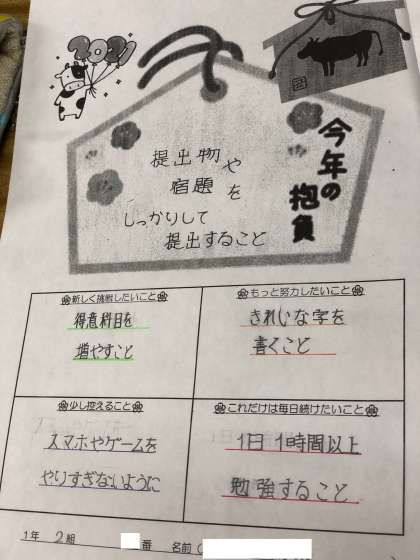 2021
今年の
抱負
提出物や
宿題を
しっかりして
提出すること
新しく挑戦したいこと
得意科目を
増やすこと
もっと努力したいこと
きれいな字を
書くこと
少し控えること
スマホやゲームを
やりすぎないように
これだけは毎日続けたいこと
1日 1時間以上
勉強すること
1年 2組 番 名前(